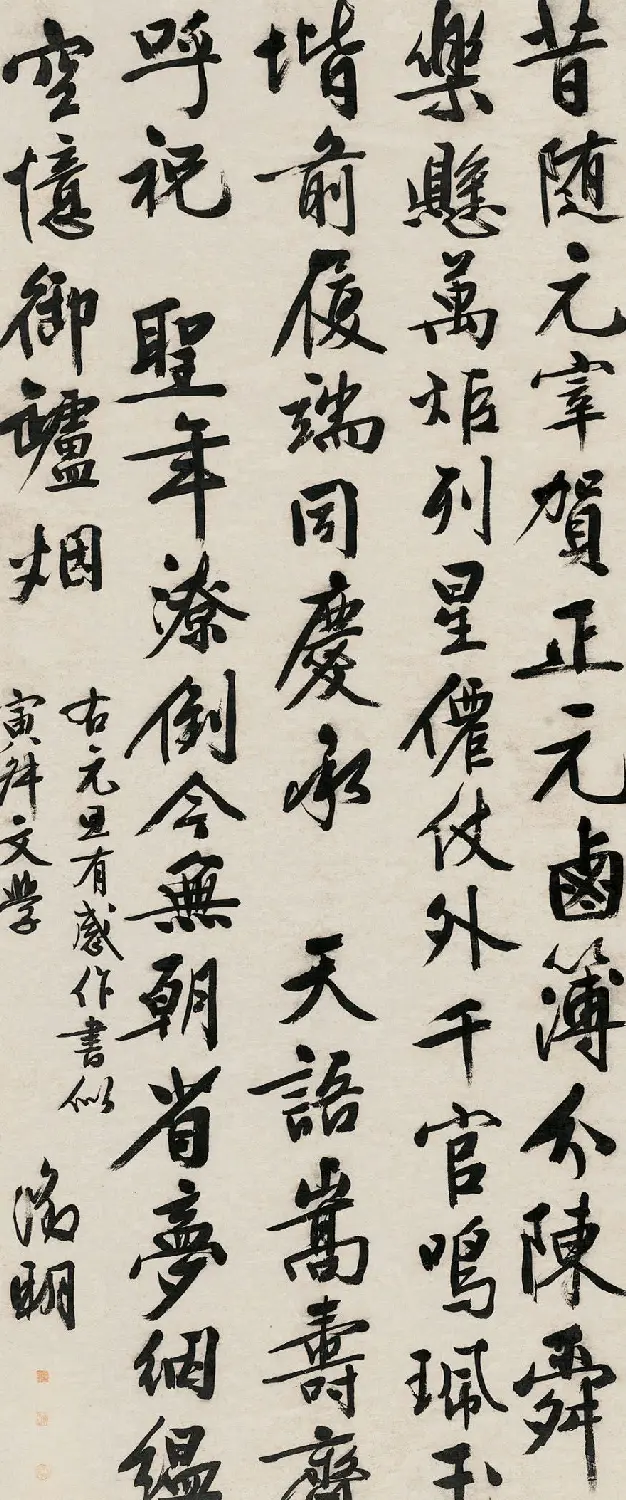 昔随元宰賀正元鹵簿分陳舜
樂懸萬炬列星僊仗外千官鳴珮玉
堦前履端同慶承 天語嵩壽齊
呼祝 聖年潦倒今無朝省夢絪縕
空憶御罏烟
右元旦有感作書似
寅斝文學
徵明